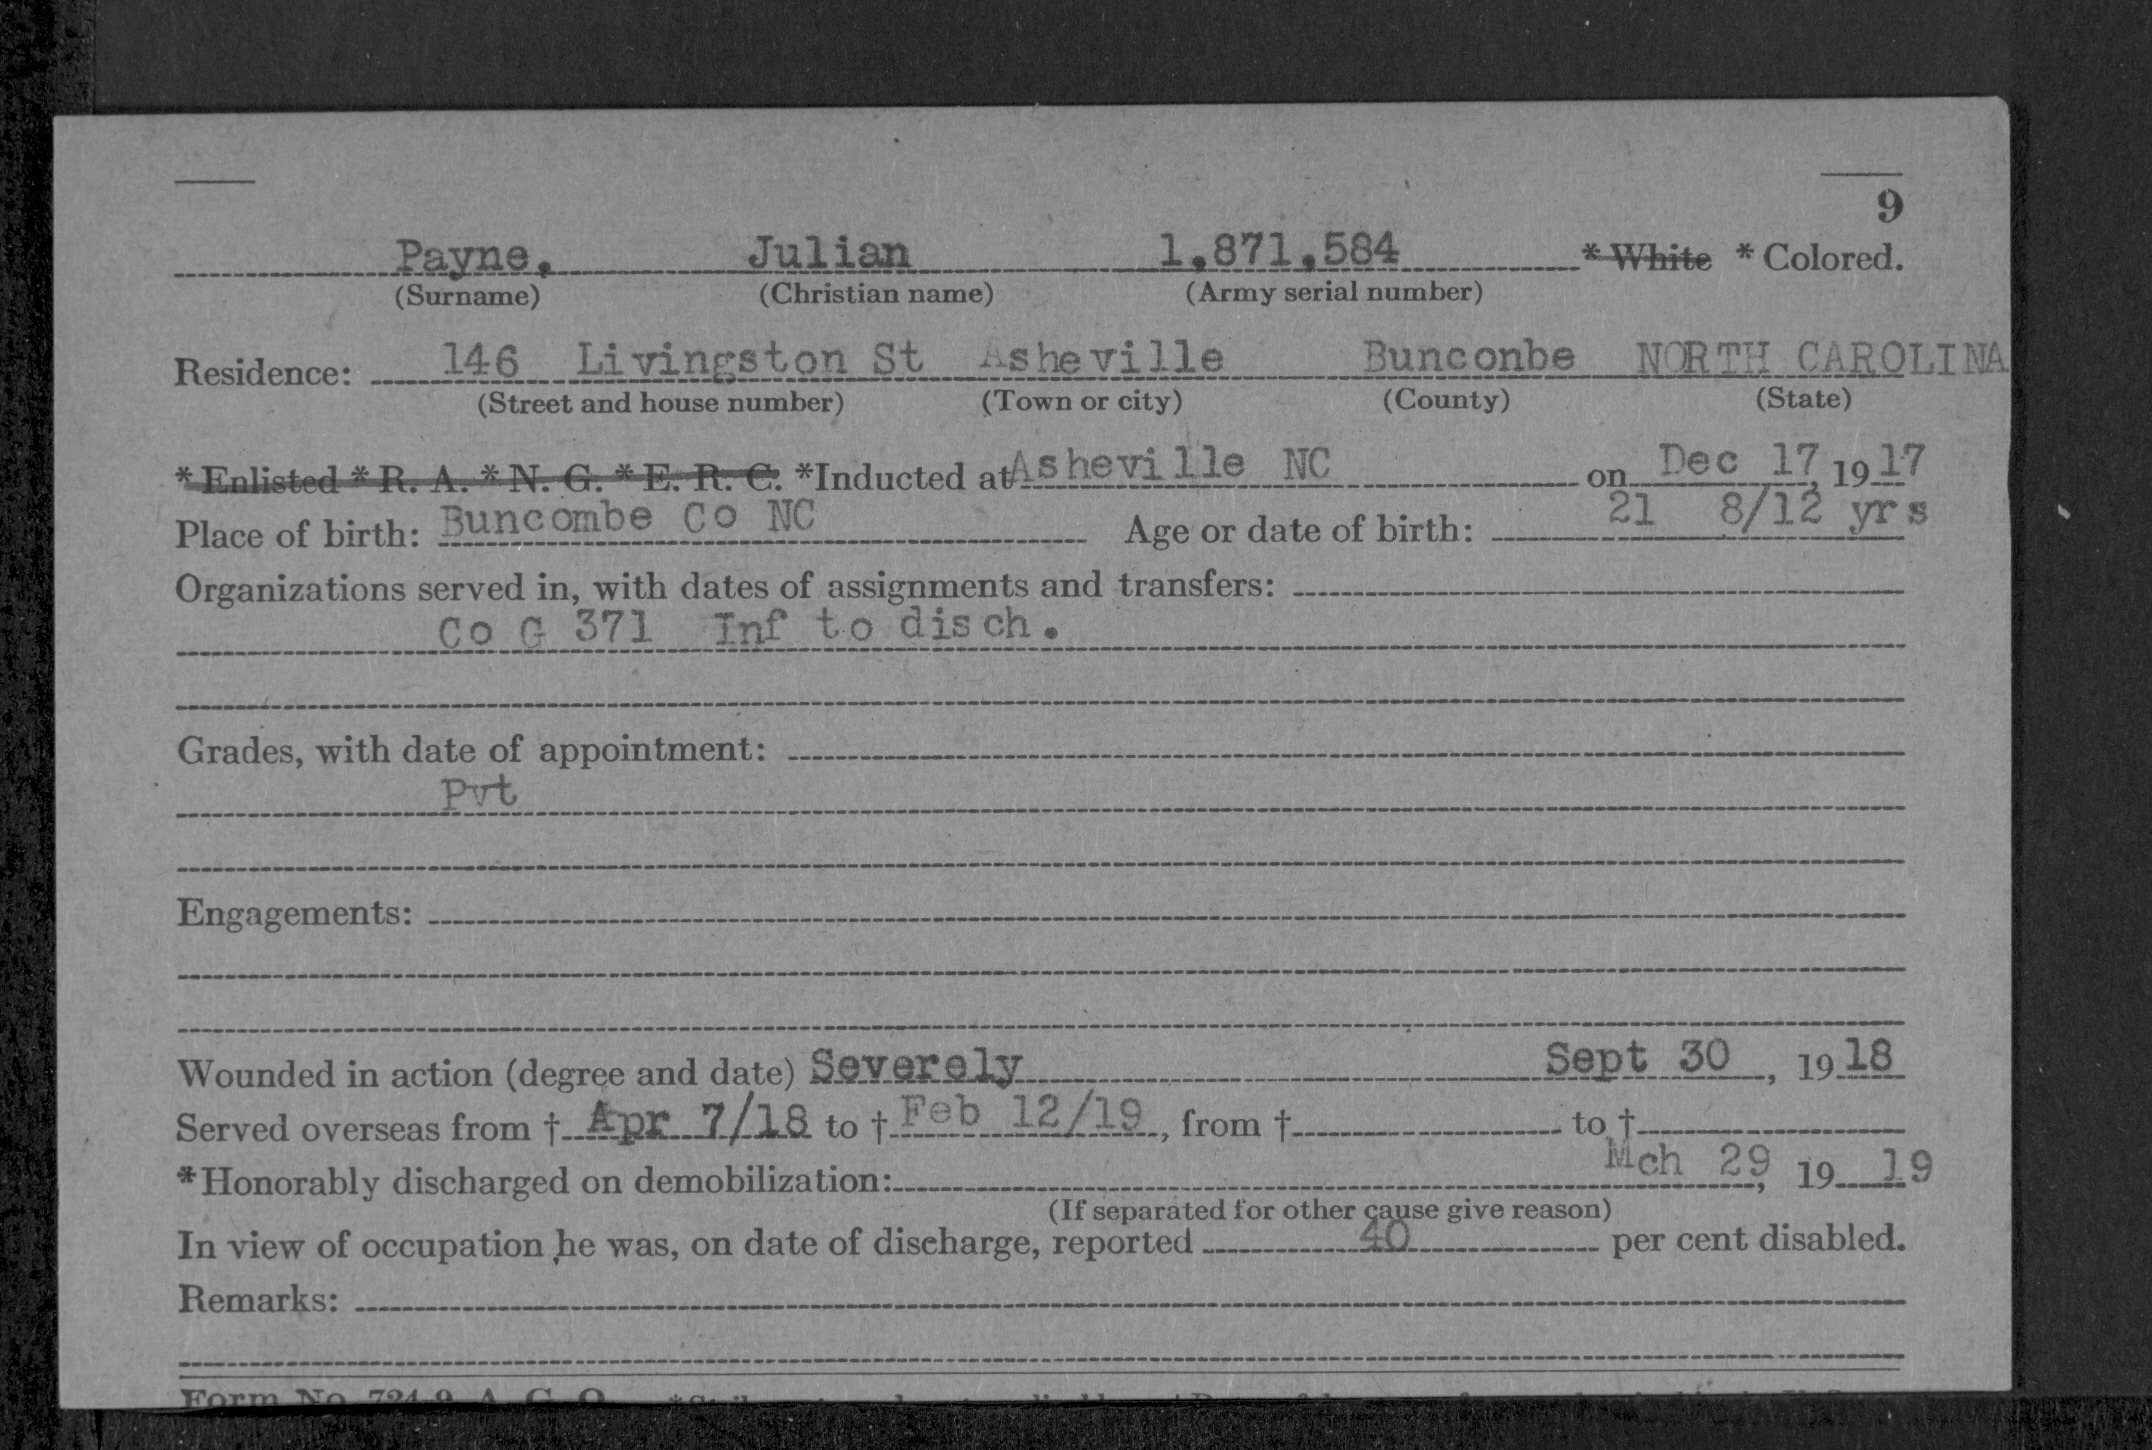 9
Payne, Julian 1,871,584 * White * Colored.
(Surname) (Christian name) (Army serial number)
Residence: 146 Livingston St Asheville Bunconbe NORTH CAROLINA
(Street and house number) (Town or city) (County) (State)
* Enlisted * R. A. * N. G. * E. R. C. *Inducted at Asheville NC on Dec 17, 1917
Place of birth: Buncombe Co NC Age or date of birth: 21 8/12 yrs
Organizations served in, with dates of assignments and transfers:
Co G 371 Inf to disch.
Grades, with date of appointment:
Pvt
Engagements:
Wounded in action (degree and date) Severely Sept 30, 1918
Served overseas from † Apr 7/18 to † Feb 12/19, from † to †
*Honorably discharged on demobilization: Mch 29, 1919
(If separated for other cause give reason)
In view of occupation he was, on date of discharge, reported 40 per cent disabled.
Remarks:
Form No. 724-9, A. G. O.